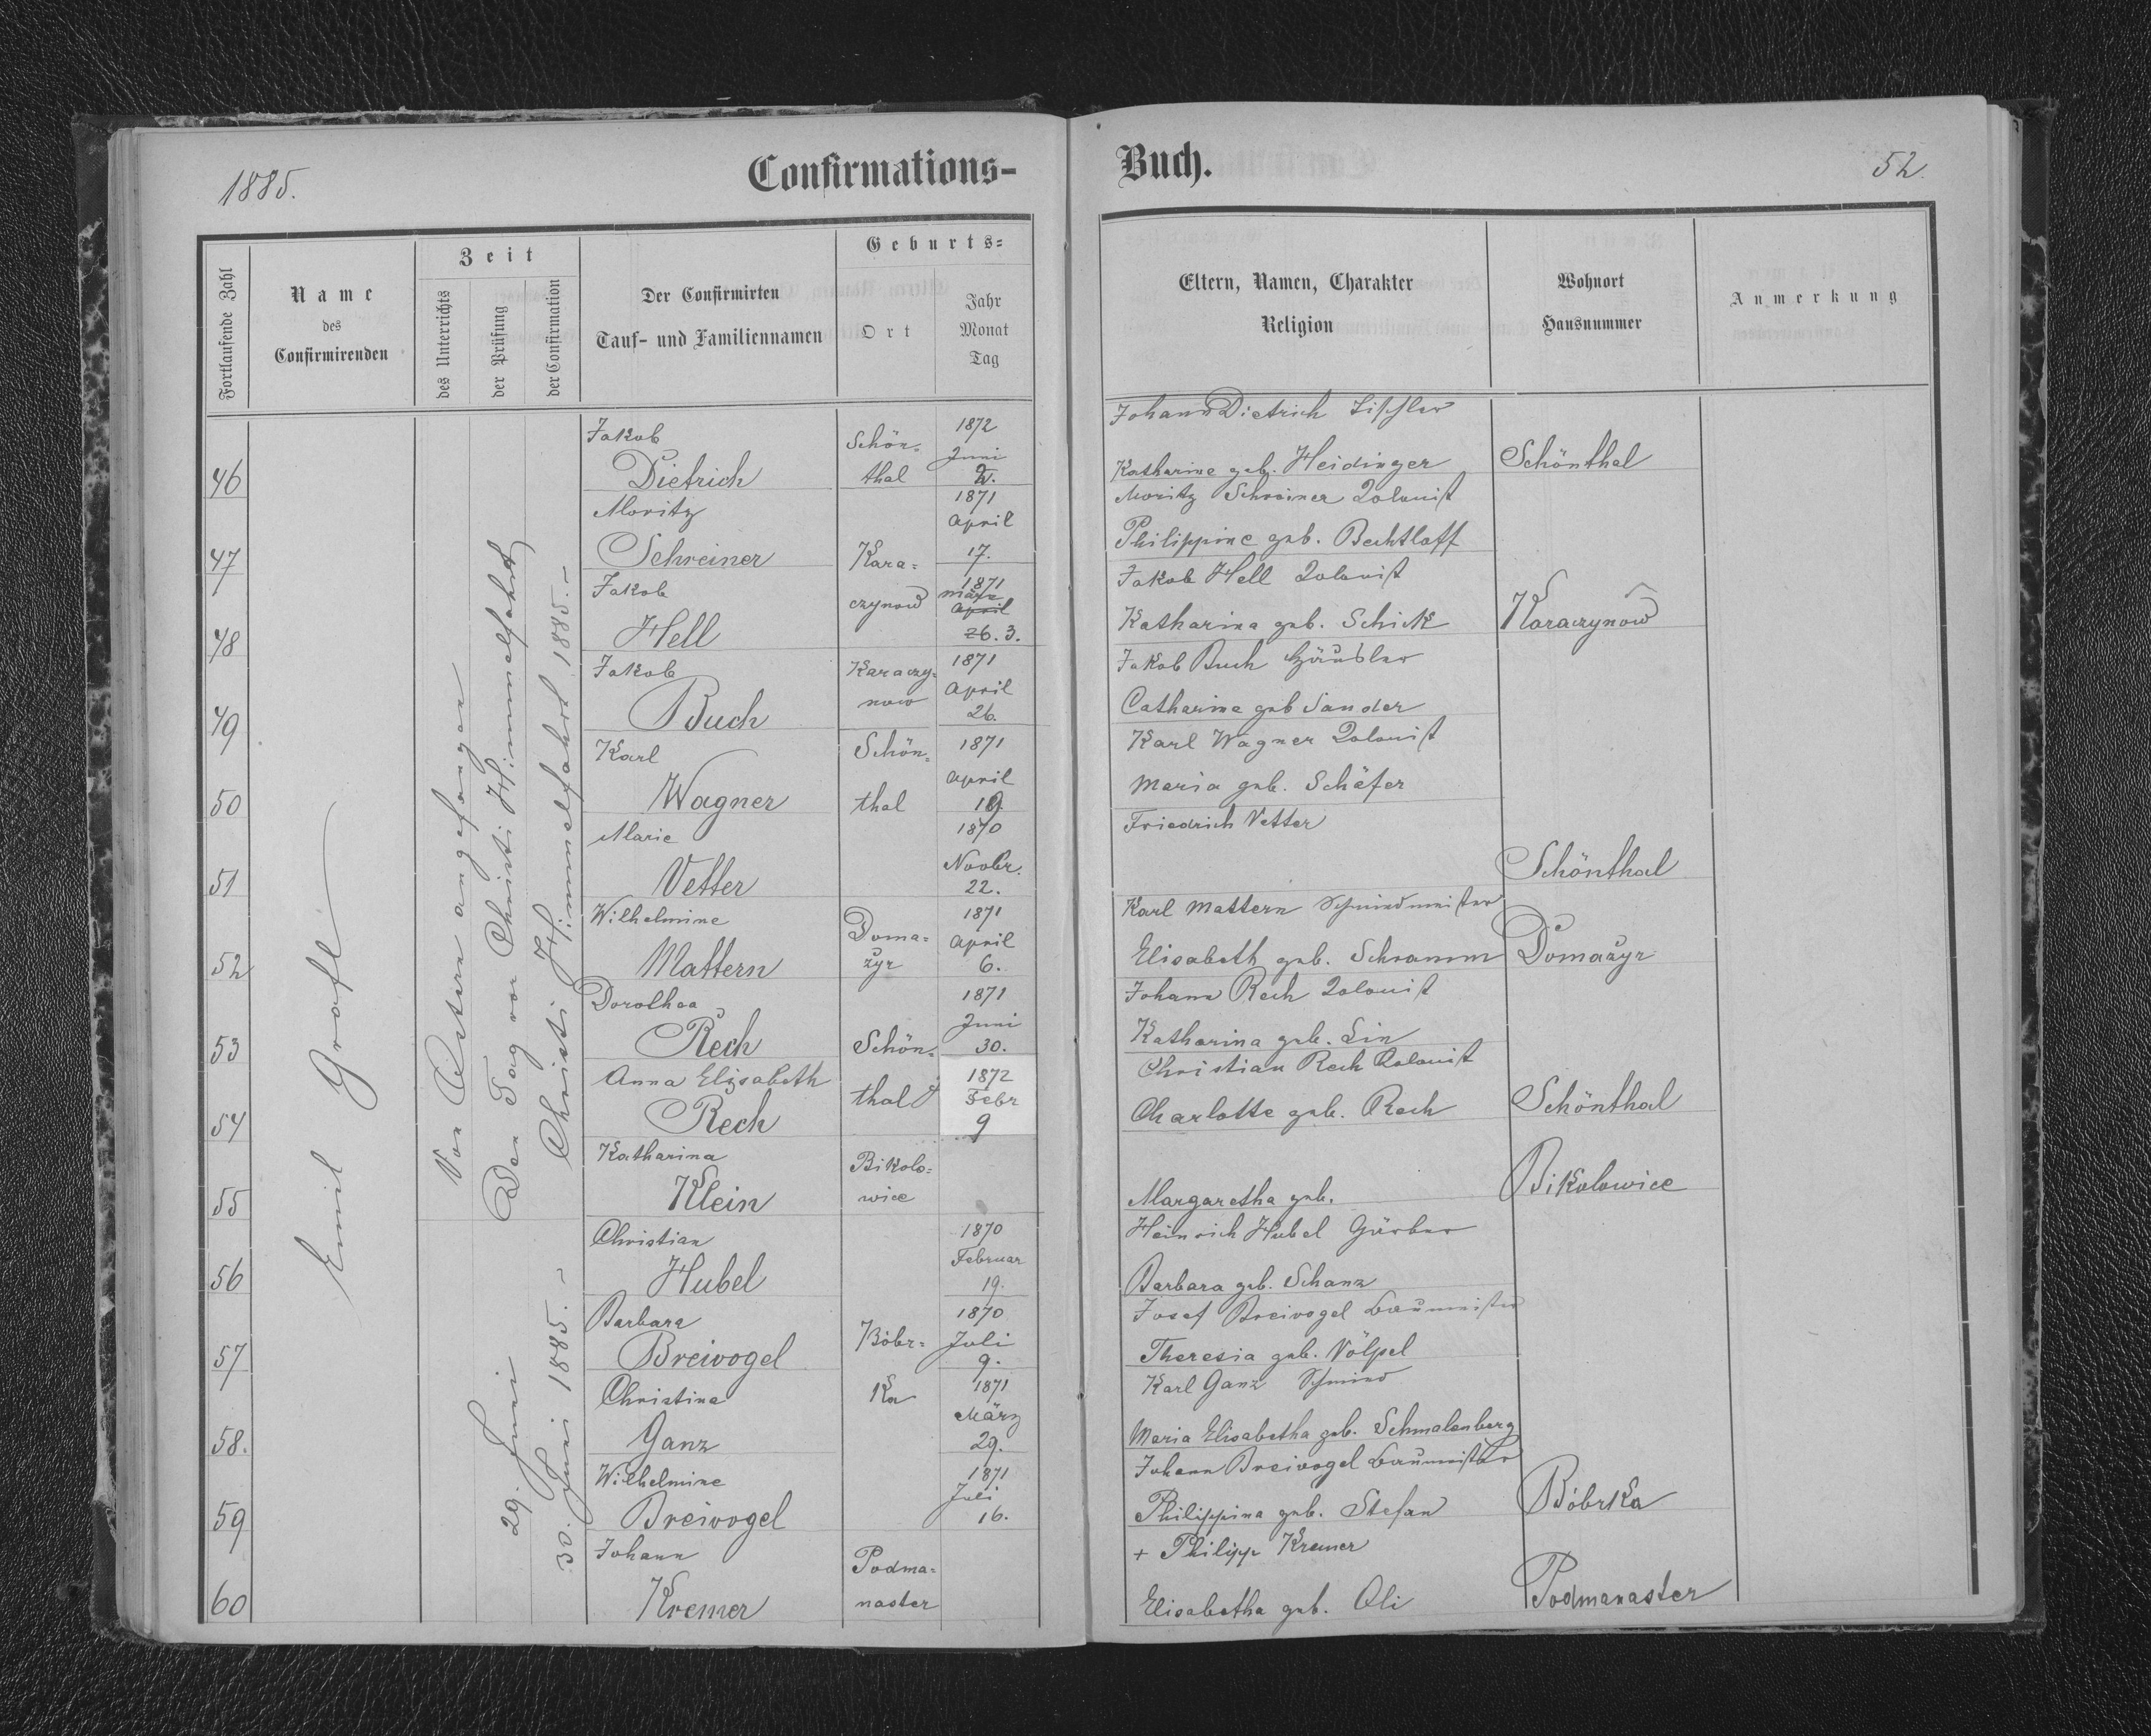 1885.
Confirmations-
Buch.
52.
Fortlaufende Zahl
Name
des
Confirmirenden
Zeit
des Unterrichts
der Prüfung
der Confirmation
Der Confirmirten
Tauf- und Familiennamen
Geburts=
Ort
Jahr
Monat
Tag
Eltern, Namen, Charakter
Religion
Wohnort
Hausnummer
Anmerkung
Emil Grafl
Von Ostern angefangen
Den Tag vor Christi Himmelfahrt
Christi Himmelfahrt 1885.-
29. Juni
30. Juni 1885. -
46
Jakob
Dietrich
Schön=
thal
1872
Juni
2.
Johann Dietrich Tischler
Katharine geb. Heidinger
Schönthal
47
Moritz
Schreiner
Kara=
1871
April
17.
Moritz Schreiner Kolonist
Philippine geb. Bechtloff
48
Jakob
Hell
czynow
1871
März
April
26. 3.
Jakob Hell Kolonist
Katharina geb. Schick
Karaczynow
49
Jakob
Buch
Karaczy=
now
1871
April
26.
Jakob Buch Häusler
Catharine geb Sander
50
Karl
Wagner
Schön=
thal
1871
April
19.
Karl Wagner Kolonist
Maria geb. Schäfer
51
Marie
Vetter
1870
Novbr.
22.
Friedrich Vetter
Schönthal
52
Wilhelmine
Mattern
Doma=
zyr
1871
April
6.
Karl Mattern Schmiedmeister
Elisabeth geb. Schramm
Domazyr
53
Dorothea
Rech
Schön=
1871
Juni
30.
Johann Rech Kolonist
Katharina geb. Lin
54
Anna Elisabeth
Rech
thal
1872
Febr
9
Christian Rech Kolonist
Charlotte geb. Rech
Schönthal
55
Katharina
Klein
Bikolo=
wice
Margaretha geb.
Bikolowice
56
Christian
Hubel
1870
Februar
19.
Heinrich Hubel Gärber
Barbara geb. Schanz
57
Barbara
Breivogel
Bóbr=
1870
Juli
9.
Josef Breivogel Baumeister
Theresia geb. Völpel
58.
Christina
Ganz
Ka
1871
März
29.
Karl Ganz Schmied
Maria Elisabetha geb. Schmalenberg
59
Wilhelmine
Breivogel
1871
Juli
16.
Johann Breivogel Baumeister
Philippina geb. Stefan
Bóbrka
60
Johann
Kremer
Podma=
naster
+ Philipp Kremer
Elisabetha geb. Oli
Podmanaster